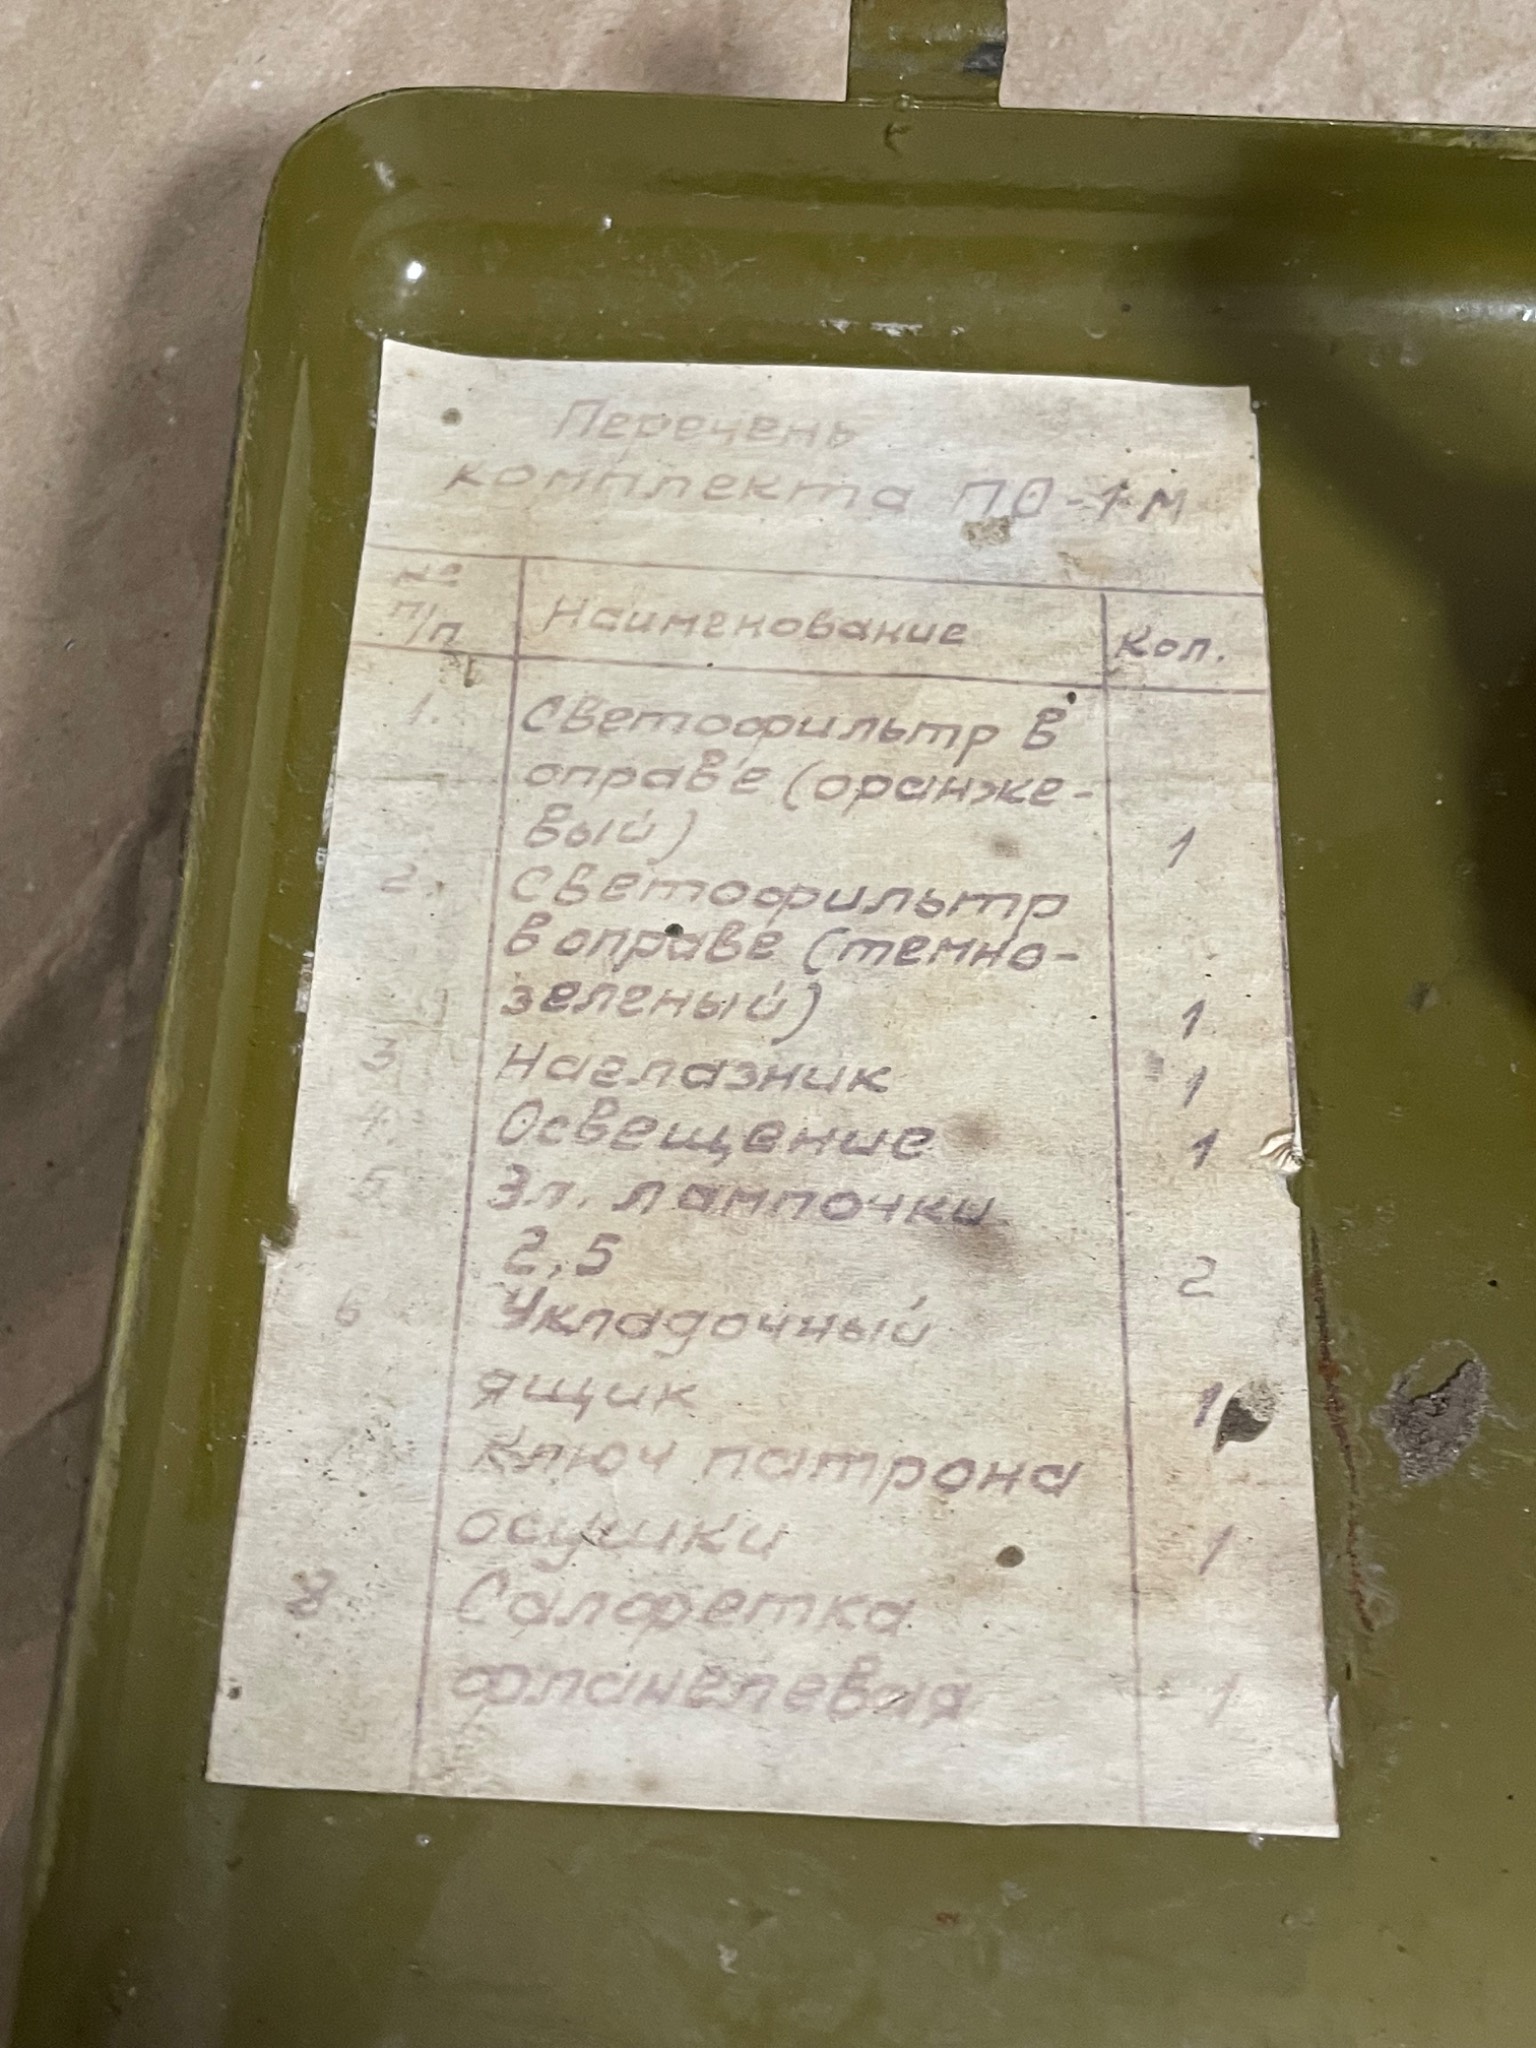 Перечень
комплекта ПО-1М
№
п/п Наименование Кол.
1. Светофильтр в
оправе (оранже-
вый) 1
2. Светофильтр
в оправе (темно-
зеленый) 1
3 Наглазник 1
4. Освещение 1
5 Эл. лампочки
2,5 2
6 Укладочный
ящик 1
Ключ патрона
осушки 1
8 Салфетка
фланелевая 1